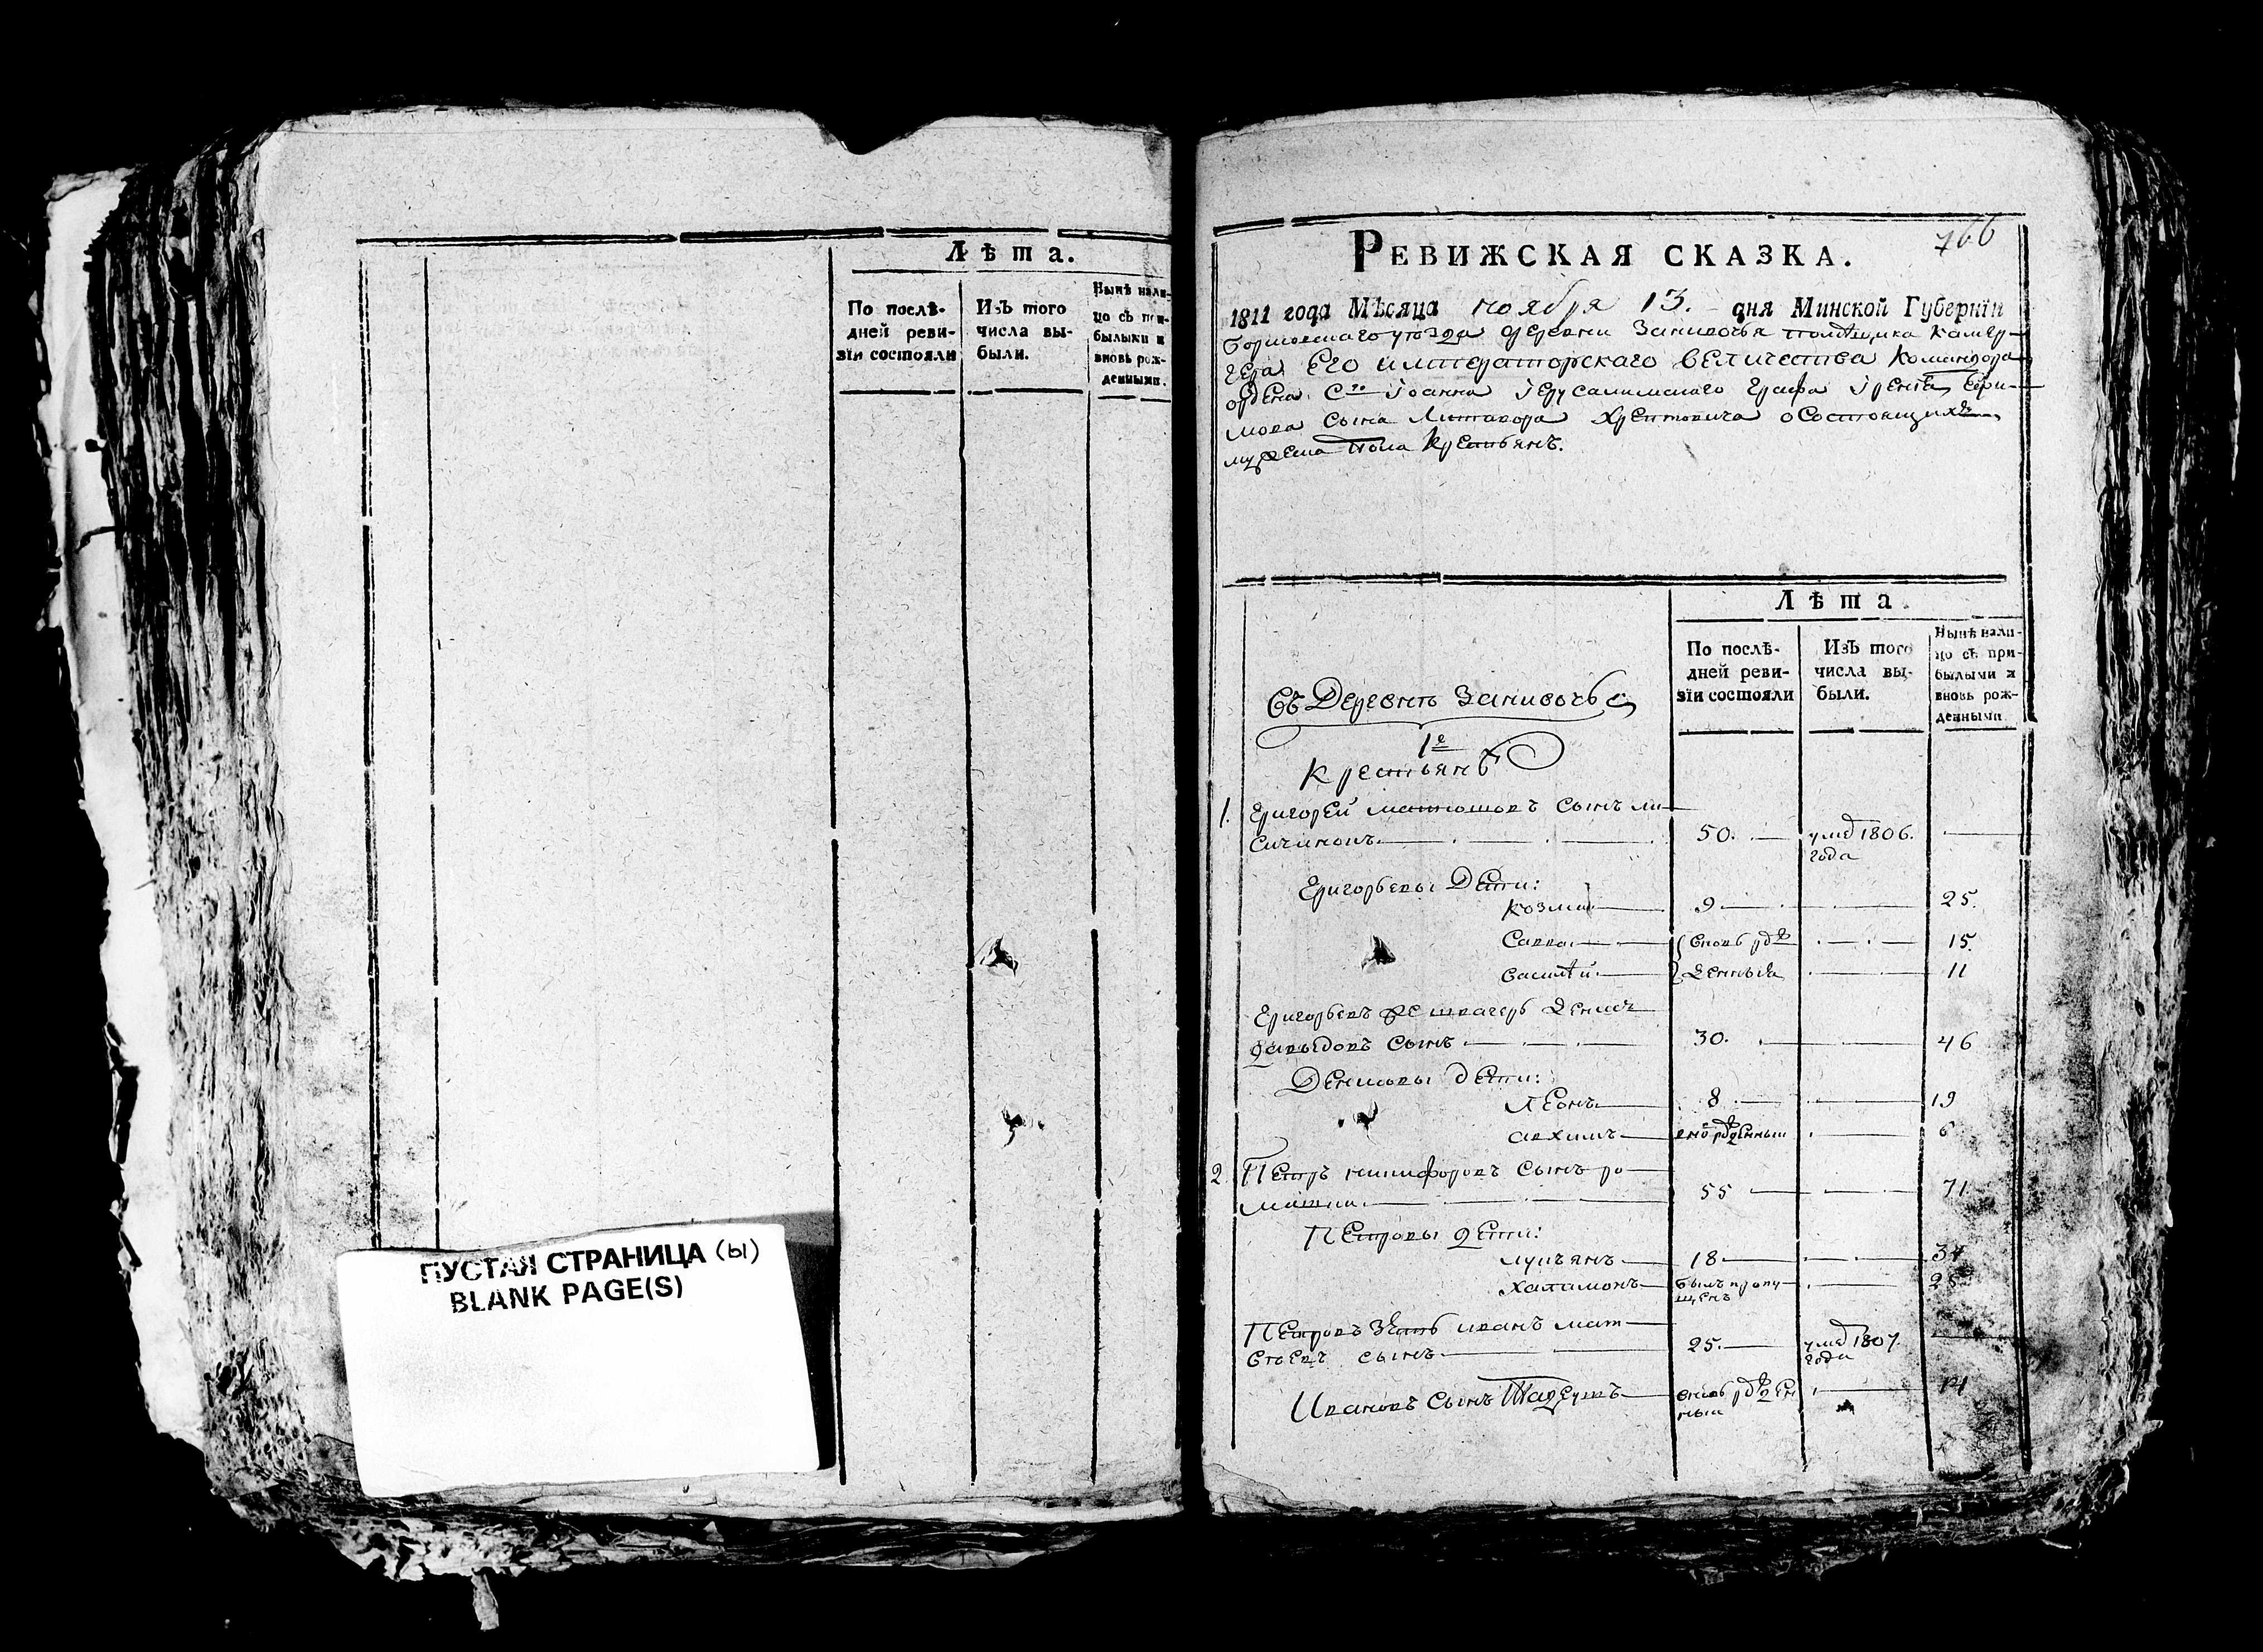 Лѣта.
По послѣ-
дней реви-
зїи состояли
Изъ того
числа вы-
были.
Нынѣ нали-
цо съ при-
былыми и
вновь рож-
денными.
ПУСТАЯ СТРАНИЦА (ы)
BLANK PAGE(S)
766
РЕВИЖСКАЯ СКАЗКА.
1811 года Мѣсяца ноября 13. дня Минской Губернїи
Борисовскаго уѣзда деревни Заничочья помѣщика камер-
гера Его императорскаго величества командора
ордена Сто Іоанна Іерусалимскаго Графа Іренея Еѳри-
мова сына Литавора Хрептовича о состоящихъ
мужеска пола крестьянъ.
Лѣта.
По послѣ-
дней реви-
зїи состояли
Изъ того
числа вы-
были.
Нынѣ нали-
цо съ при-
былыми и
вновь рож-
денными
Въ Деревнѣ
1е
Крестьянъ
1. Григорей сынъ ли-
сичинокъ 50. умер 1806.
года
Григорьевы Дети:
Козма 9 25.
Савва вновь рож 15.
Василѣй денныя 11
Григорьевъ же швагеръ Денисъ
Давыдовъ сынъ 30. 46
Денисовы дети:
Леонъ 8 19
Авхимъ внов рожденный 6
2. Петръ никифоровъ сынъ ро-
матка 55 71
Петровы дети:
лукъянъ 18 34
Халимонъ былъ пропу- 25
щенъ
Петровъ Зять иванъ мат-
веевъ сынъ 25. умер 1807.
года
Ивановъ сынъ Тадеушъ вновь рожден- 14
ный